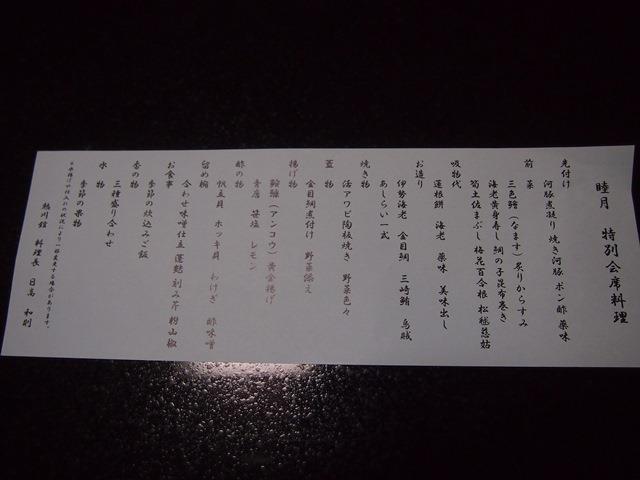 睦月 特別会席料理
先付け
河豚煮凝り 焼き河豚 ポン酢 薬味
前菜
三色鱠(なます) 炙りからすみ
海老黄身寿し 鯛の子昆布巻き
筍土佐まぶし 梅花百合根 松毬慈姑
吸物代
蓮根餅 海老 薬味 美味出し
お造り
伊勢海老 金目鯛 三崎鮪 烏賊
あしらい一式
焼き物
活アワビ陶板焼き 野菜色々
蓋物
金目鯛煮付け 野菜添え
揚げ物
鮟鱇(アンコウ)黄金揚げ
青唐 藻塩 レモン
酢の物
帆立貝 ホッキ貝 わけぎ 酢味噌
留め椀
合わせ味噌仕立 蓬麩 刻み芹 粉山椒
お食事
季節の炊込みご飯
香の物
三種盛り合わせ
水物
季節の果物
※水揚げや仕入れの状況により一部変更する場合があります。
熱川館 料理長 日高 和則